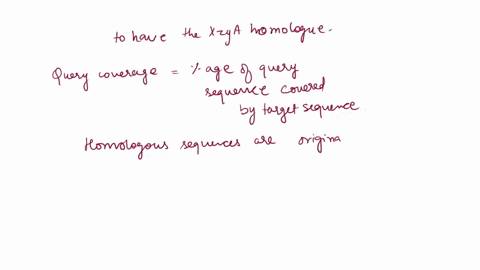 to have the XzyA homologue.
Query coverage = %age of query
sequence covered
by target sequence
Homologous sequences are origina